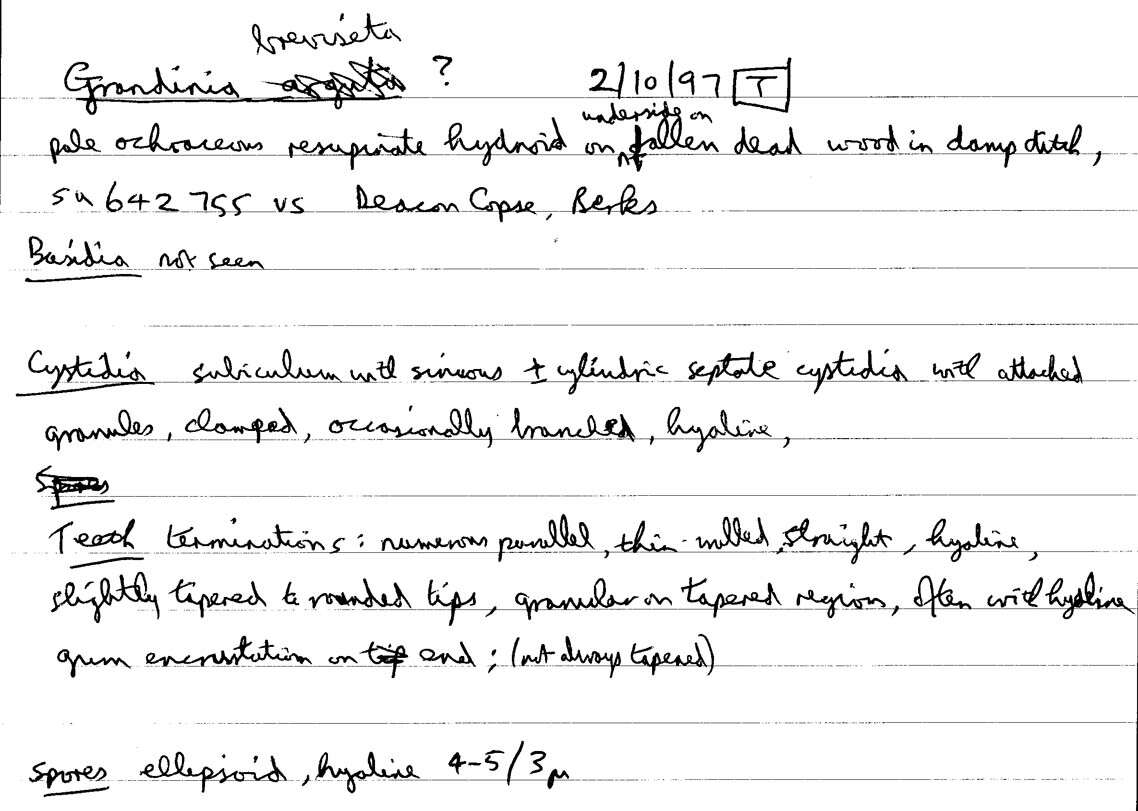 breviseta
Grandinia arguta ? 2/10/97 T
underside on
pale ochraceous resupinate hydnoid on fallen dead wood in damp ditch,
SU 642 755 VS Deacon Copse, Berks
Basidia not seen
Cystidia subiculum with sinuous ± cylindric septate cystidia with attached
granules, clamped, occasionally branched, hyaline,
Spores
Teeth terminations: numerous parallel, thin-walled, straight, hyaline,
slightly tapered to rounded tips, granular on tapered region, often with hyaline
gum encrustation on tip end; (not always tapered)
Spores ellepsoid, hyaline 4-5/3µ